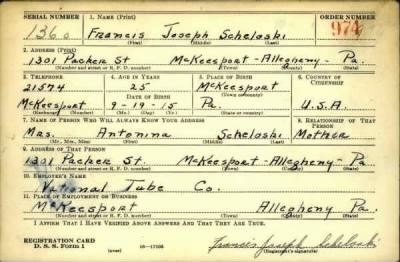 SERIAL NUMBER 1. NAME (Print) ORDER NUMBER
1360 Francis Joseph Scheloski 974
(First) (Middle) (Last)
2. ADDRESS (Print)
1301 Packer St McKeesport - Allegheny - Pa.
(Number and street or R. F. D. number) (Town) (County) (State)
3. TELEPHONE 4. AGE IN YEARS 5. PLACE OF BIRTH 6. COUNTRY OF CITIZENSHIP
21574 25 McKeesport
DATE OF BIRTH (Town or county)
McKeesport 9-19-15 Pa. U.S.A.
(Exchange) (Number) (Mo.) (Day) (Yr.) (State or country)
7. NAME OF PERSON WHO WILL ALWAYS KNOW YOUR ADDRESS 8. RELATIONSHIP OF THAT PERSON
Mrs. Antonina Scheloski Mother
(Mr., Mrs., Miss) (First) (Middle) (Last)
9. ADDRESS OF THAT PERSON
1301 Packer St. McKeesport - Allegheny - Pa.
(Number and street or R. F. D. number) (Town) (County) (State)
10. EMPLOYER'S NAME
National Tube Co.
11. PLACE OF EMPLOYMENT OR BUSINESS
McKeesport Allegheny Pa.
(Number and street or R. F. D. number) (Town) (County) (State)
I AFFIRM THAT I HAVE VERIFIED ABOVE ANSWERS AND THAT THEY ARE TRUE.
REGISTRATION CARD
D. S. S. Form 1 (over) 16-17105 Francis Joseph Scheloski
(Registrant's signature)